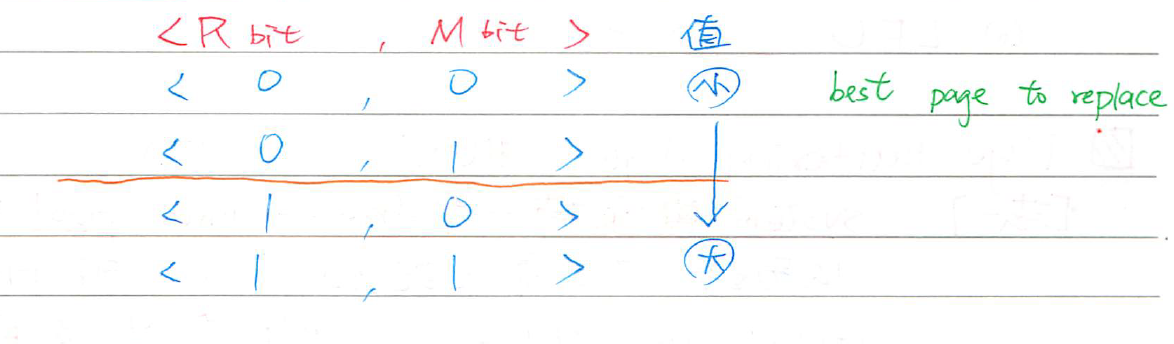 <R bit , M bit> 值
< 0 , 0 > 小 best page to replace
< 0 , 1 >
< 1 , 0 >
< 1 , 1 > 大